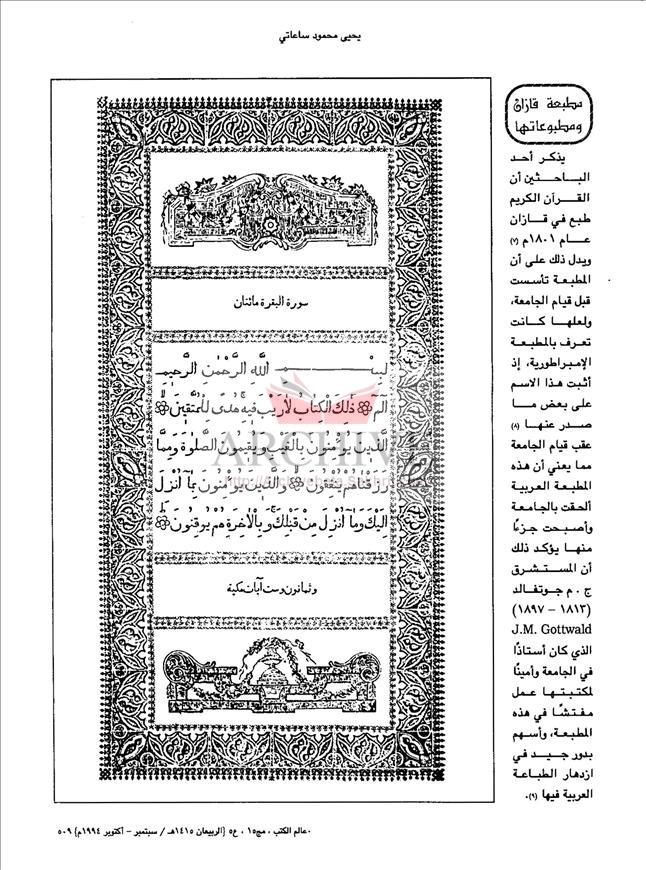 يحيى محمود ساعاتي
مطبعة قازان
ومطبوعاتها
يذكر أحد
الباحثين أن
القرآن الكريم
طبع في قازان
عام ١٨٠١م (٧)
ويدل ذلك على أن
المطبعة تأسست
قبل قيام الجامعة،
ولعلها كانت
تعرف بالمطبعة
الإمبراطورية، إذ
أثبت هذا الاسم
على بعض ما
صدر عنها (٨)
عقب قيام الجامعة
مما يعني أن هذه
المطبعة العربية
ألحقت بالجامعة
وأصبحت جزءًا
منها يؤكد ذلك
أن المستشرق
ج . م جوتفالد
(١٨١٣ – ١٨٩٧)
J.M. Gottwald
الذي كان أستاذًا
في الجامعة وأمينًا
لمكتبتها عمل
مفتشًا في هذه
المطبعة، وأسهم
بدور جيد في
ازدهار الطباعة
العربية فيها (٩).
سورة البقرة مائتان
بِسْمِ اللَّهِ الرَّحْمٰنِ الرَّحِيمِ
الٓمٓ ذٰلِكَ الْكِتَابُ لَا رَيْبَ فِيهِ هُدًى لِلْمُتَّقِينَ لا
الَّذِينَ يُؤْمِنُونَ بِالْغَيْبِ وَيُقِيمُونَ الصَّلٰوةَ وَمِمَّا
رَزَقْنَاهُمْ يُنْفِقُونَ وَالَّذِينَ يُؤْمِنُونَ بِمَا أُنْزِلَ
إِلَيْكَ وَمَا أُنْزِلَ مِنْ قَبْلِكَ وَبِالْآخِرَةِ هُمْ يُوقِنُونَ ط
وثمانون وست آيات مكية
ARCHIVE
عالم الكتب ، مج١٥ ، ع٥ (الربيعان ١٤١٥هـ / سبتمبر – أكتوبر ١٩٩٤م) ٥٠٩